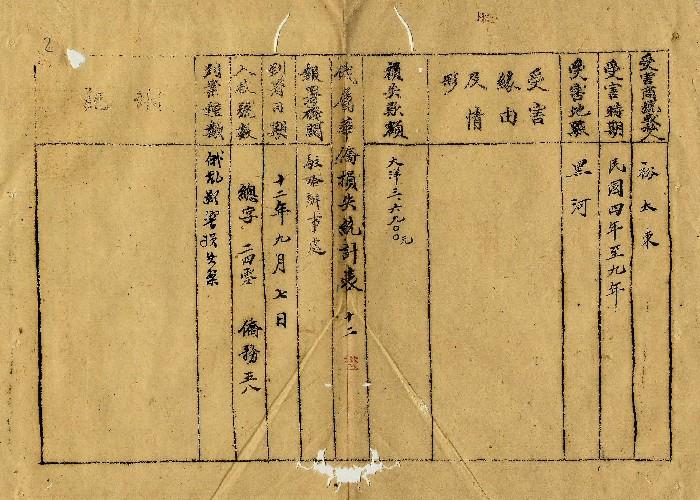 受害商號或人
裕太東
受害時期
民國四年至九年
受害地點
黑河
受害
緣由
及情
形
損失款額
大洋三.六九〇〇元
俄屬華僑損失統計表 十二
報署機關
駐哈辦事處
到署日期
十二年九月七日
入款號數
總字 二四零 僑務 五八
列案種類
俄亂影響損失案
附記
2